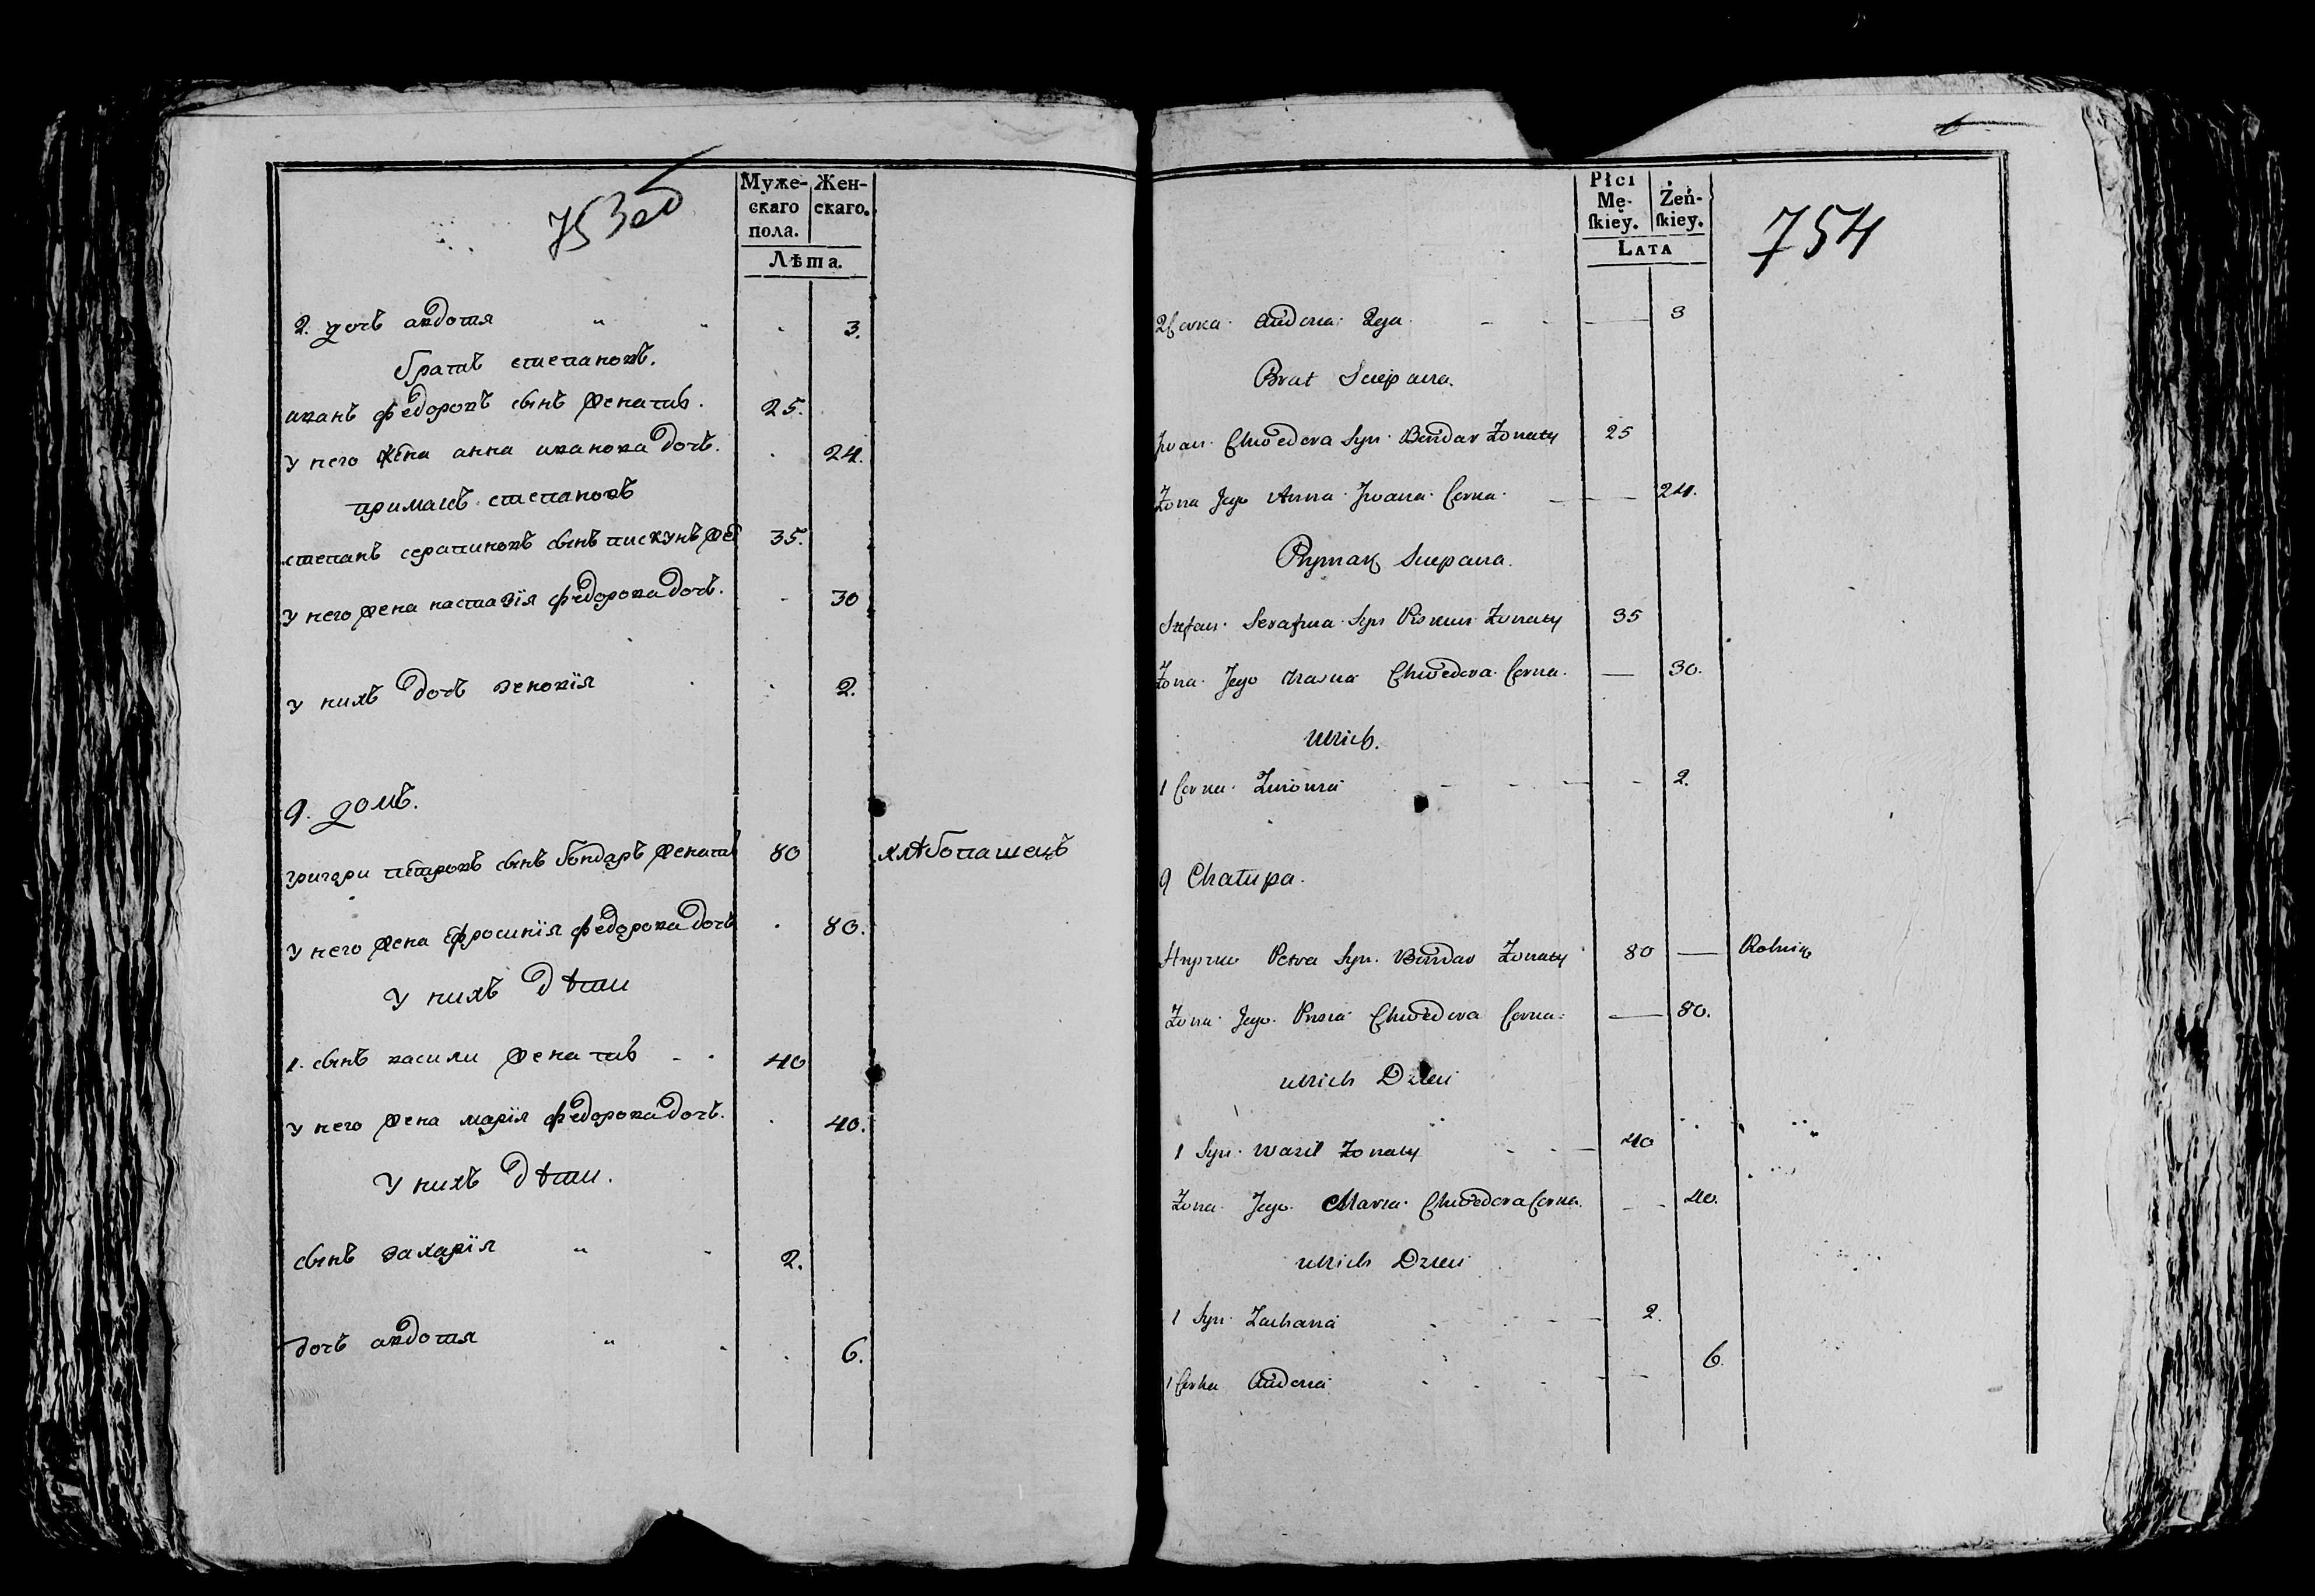 753об
Муже- Жен-
скаго скаго.
пола.
Лѣта.
2. дочь авдотя " 3.
братъ степановъ.
иванъ федоровъ сынъ женатъ. 25.
у него жена анна иванова дочь. 24.
примакъ степановъ
степанъ серапиновъ сынъ пискунъ же 35.
у него жена настазія федорова дочь. 30
у нихъ дочь зеновія 2.
9. домъ.
григори петровъ сынъ бондарь женатъ 80 хлѣбопашецъ
у него жена ефросинія федорова дочь 80.
у нихъ дѣти
1. сынъ васили женатъ 40
у него жена марія федорова дочь. 40.
у нихъ дѣти.
сынъ захарія " 2.
дочь авдотя " 6.
Płci
Mę- Żeń-
ſkiey. ſkiey.
LATA
754
2 Corka Audocia 3
Brat Scepana.
Jwan Chwedora Syn Bondar Zonaty 25
Zona Jego Anna Jwana Corka. 24.
Prymak Scepana.
Stefan Serafina Syn Piskun Zonaty 35
Zona Jego Nasta Chwedora Corka. 30.
Uknich.
1 Corka Zinowia 2.
9 Chatupa.
Hryhor Petra Syn Bondar Zonaty 80 Rolnik
Zona Jego Prosia Chwedora Corka 80.
uknich Dzieci
1 Syn Wasil Zonaty 40
Zona Jego Maria Chwedora Corka. 40.
uknich Dzieci
1 Syn Zacharia 2.
1 Corka Audocia 6.